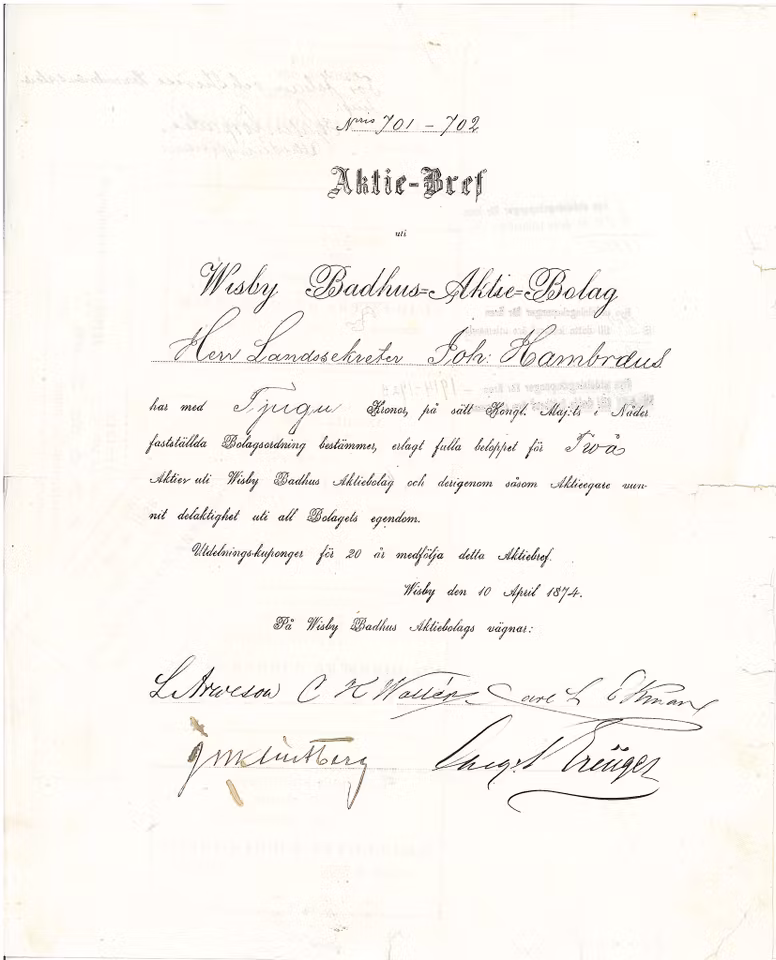 N:ris 701 – 702
Aktie-Bref
uti
Wisby Badhus-Aktie-Bolag
Herr Landssekreter Joh: Hambræus
har med Tjugu Kronor, på sätt Kongl. Maj:ts i Nåder
fastställda Bolagsordning bestämmer, erlagt fulla beloppet för Två
Aktier uti Wisby Badhus Aktiebolag och derigenom såsom Aktieegare vun-
nit delaktighet uti all Bolagets egendom.
Utdelnings-kuponger för 20 år medfölja detta Aktiebref.
Wisby den 10 April 1874.
På Wisby Badhus Aktiebolags vägnar:
L Arweson C K Wallér Carl L Ekman
J M Klintberg Aug. Kreüger